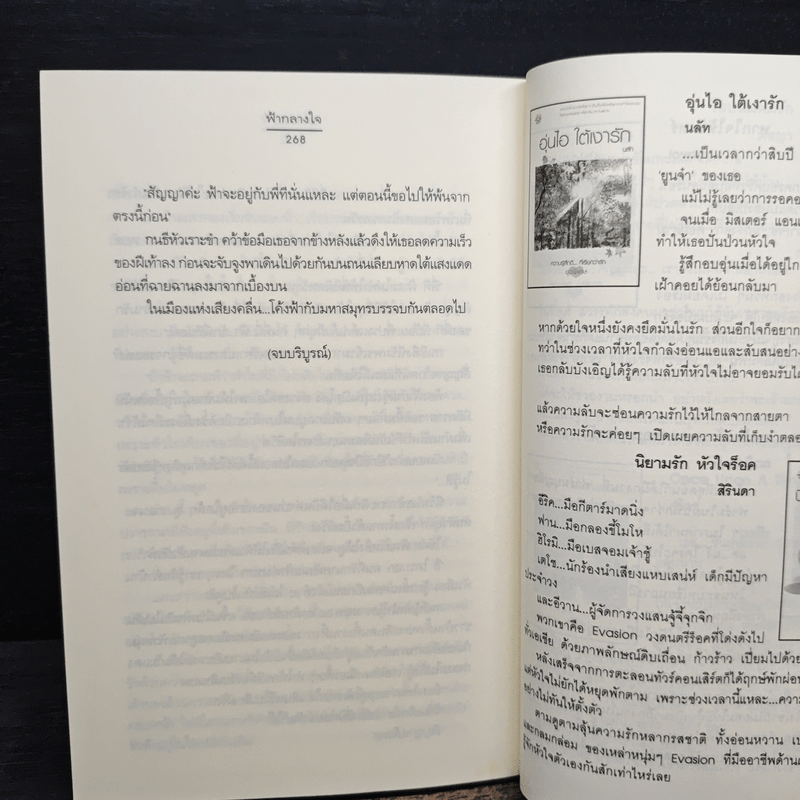 ฟ้ากลางใจ
268
"สัญญาค่ะ ฟ้าจะอยู่กับพี่ทีนั่นแหละ แต่ตอนนี้ขอไปให้พ้นจาก
ตรงนี้ก่อน"
กนธีหัวเราะขำ คว้าข้อมือเธอจากข้างหลังแล้วดึงให้เธอลดความเร็ว
ของฝีเท้าลง ก่อนจะจับจูงพาเดินไปด้วยกันบนถนนเลียบหาดใต้แสงแดด
อ่อนที่ฉายฉานลงมาจากเบื้องบน
ในเมืองแห่งเสียงคลื่น...โค้งฟ้ากับมหาสมุทรบรรจบกันตลอดไป
(จบบริบูรณ์)
อุ่นไอ ใต้เงารัก
นลัท
อุ่นไอ ใต้เงารัก
นลัท
...เป็นเวลากว่าสิบปี
'ยูนจ๋า' ของเธอ
แม้ไม่รู้เลยว่าการรอคอ
จนเมื่อ มิสเตอร์ แอน
ทำให้เธอปั่นป่วนหัวใจ
รู้สึกอบอุ่นเมื่อได้อยู่ใก
เฝ้าคอยได้ย้อนกลับมา
หากด้วยใจหนึ่งยังคงยึดมั่นในรัก ส่วนอีกใจก็อยาก
ทว่าในช่วงเวลาที่หัวใจกำลังอ่อนแอและสับสนอย่าง
เธอกลับบังเอิญได้รู้ความลับที่หัวใจไม่อาจยอมรับได้
แล้วความลับจะซ่อนความรักไว้ให้ไกลจากสายตา
หรือความรักจะค่อยๆ เปิดเผยความลับที่เก็บงำตลอ
นิยามรัก หัวใจร็อค
สิรินดา
อิริค...มือกีตาร์มาดนิ่ง
ฟาน...มือกลองขี้โมโห
ฮิโรมิ...มือเบสจอมเจ้าชู้
เดโช...นักร้องนำเสียงแหบเสน่ห์ เด็กมีปัญหา
ประจำวง
และอีวาน...ผู้จัดการวงแสนจู้จี้จุกจิก
พวกเขาคือ Evasion วงดนตรีร็อคที่โด่งดังไป
ทั่วเอเชีย ด้วยภาพลักษณ์ดิบเถื่อน ก้าวร้าว เปี่ยมไปด้วย
หลังเสร็จจากการตะลอนทัวร์คอนเสิร์ตก็ได้ฤกษ์พักผ่อน
แต่หัวใจไม่ยักได้หยุดพักตาม เพราะช่วงเวลานี้แหละ...ความ
อย่างไม่ทันให้ตั้งตัว
ตามดูตามลุ้นความรักหลากรสชาติ ทั้งอ่อนหวาน
และกลมกล่อม ของเหล่าหนุ่มๆ Evasion ที่มืออาชีพด้าน
รู้จักหัวใจตัวเองกันสักเท่าไหร่เลย